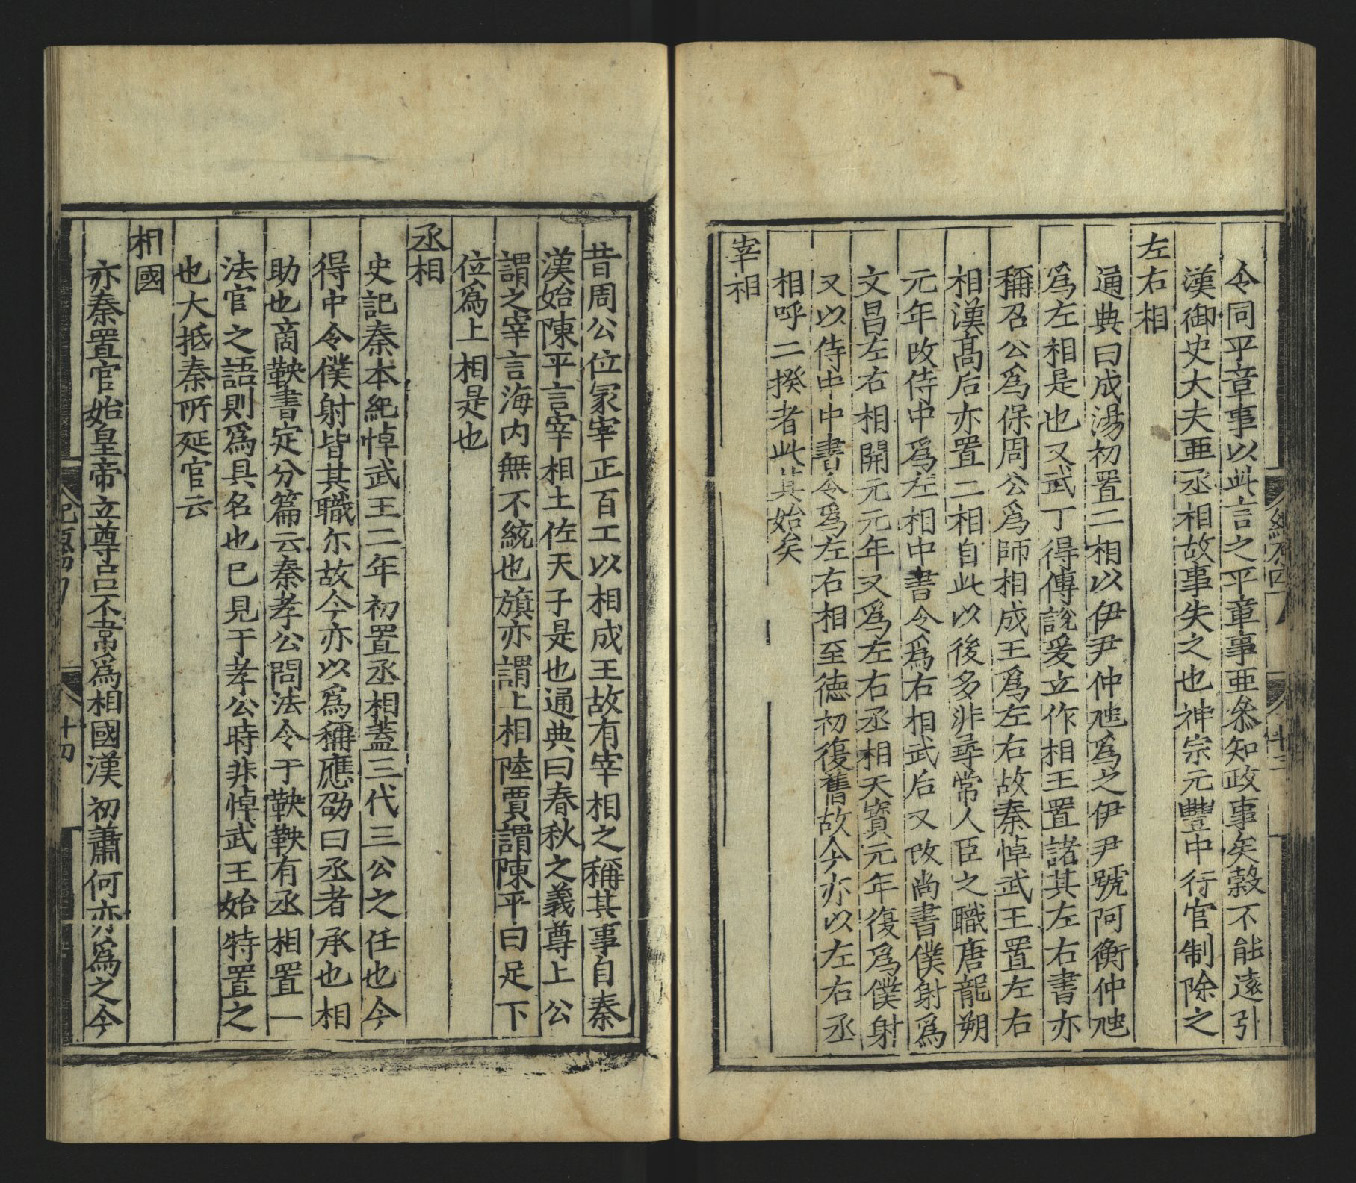 令同平章事以此言之平章事亜叅知政事矣穀不能遠引
漢御史大夫亜丞相故事失之也神宗元豐中行官制除之
左右相
通典曰成湯初置二相以伊尹仲虺爲之伊尹號阿衡仲虺
爲左相是也又武丁得傅說爰立作相王置諸其左右書亦
稱召公爲保周公爲師相成王爲左右故秦悼武王置左右
相漢高后亦置二相自此以後多非尋常人臣之職唐龍朔
元年改侍中爲左相中書令爲右相武后又改尚書僕射爲
文昌左右相開元元年又爲左右丞相天寳元年復爲僕射
又以侍中中書令爲左右相至德初復舊故今亦以左右丞
相呼二揆者此其始矣
宰相
昔周公位冢宰正百工以相成王故有宰相之稱其事自秦
漢始陳平言宰相上佐天子是也通典曰春秋之義尊上公
謂之宰言海内無不統也旗亦謂上相陸賈謂陳平曰足下
位爲上相是也
丞相
史記秦本紀悼武王二年初置丞相蓋三代三公之任也今
得中令僕射皆其職尓故今亦以爲稱應劭曰丞者承也相
助也商鞅書定分篇云秦孝公問法令于鞅鞅有丞相置一
法官之語則爲具名也已見于孝公時非悼武王始特置之
也大抵秦所延官云
相國
亦秦置官始皇帝立尊吕不韋爲相國漢初蕭何亦爲之今